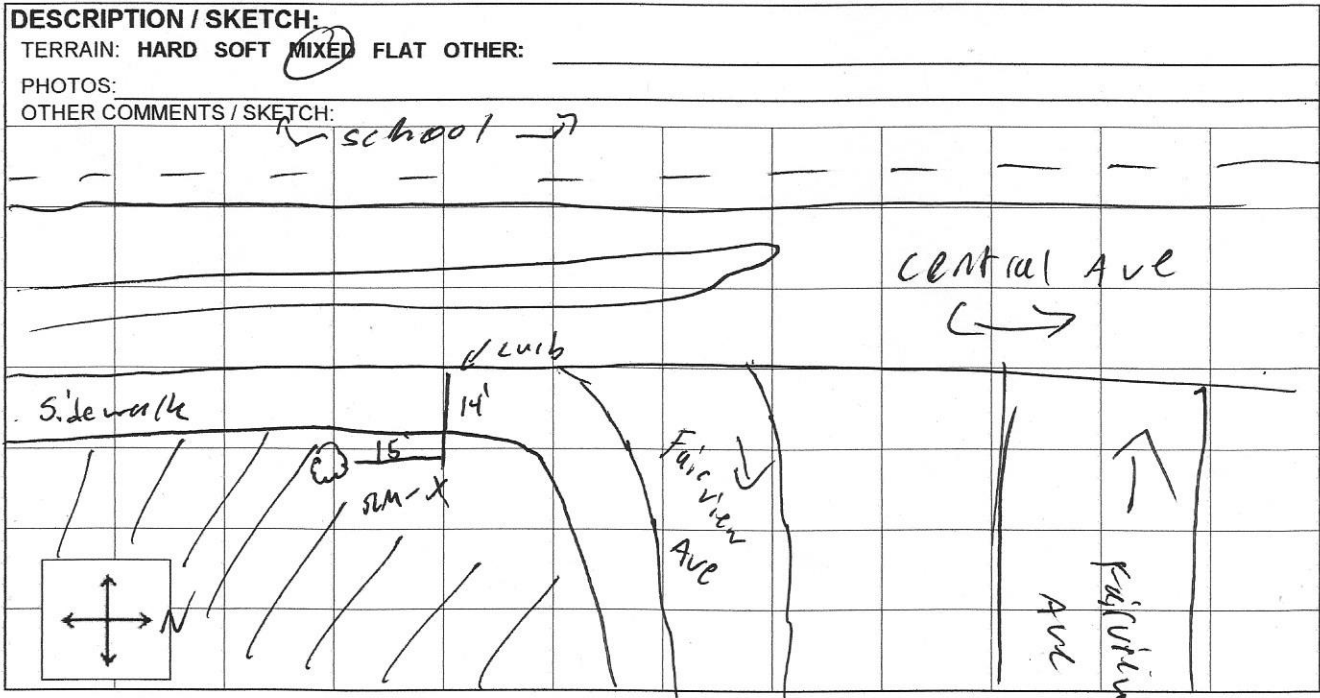 DESCRIPTION / SKETCH:
TERRAIN: HARD SOFT MIXED FLAT OTHER:
PHOTOS:
OTHER COMMENTS / SKETCH:
school
Central Ave
curb
Sidewalk
14'
15'
Fairview
Ave
N
Fairview
Ave